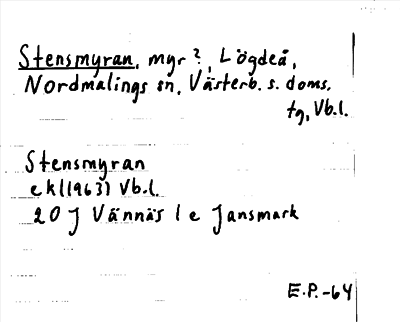 Stensmyran, myr?, Lögdeå,
Nordmalings sn, Västerb. s. doms.
tg, Vb.l.
Stensmyran
ekl(1963) Vb.l.
20 J Vännäs 1 e Jansmark
E.P.-64